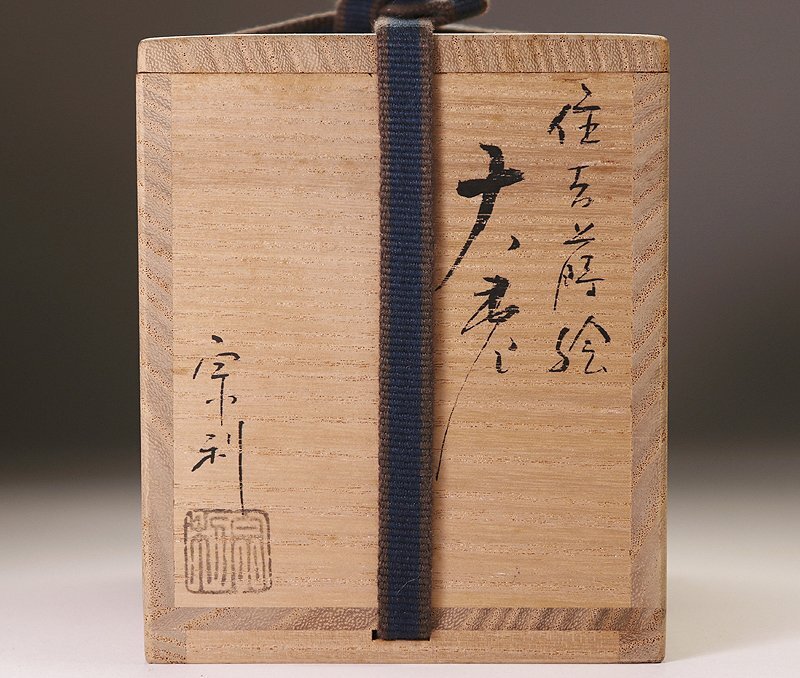 住吉蒔絵
大棗
宗利